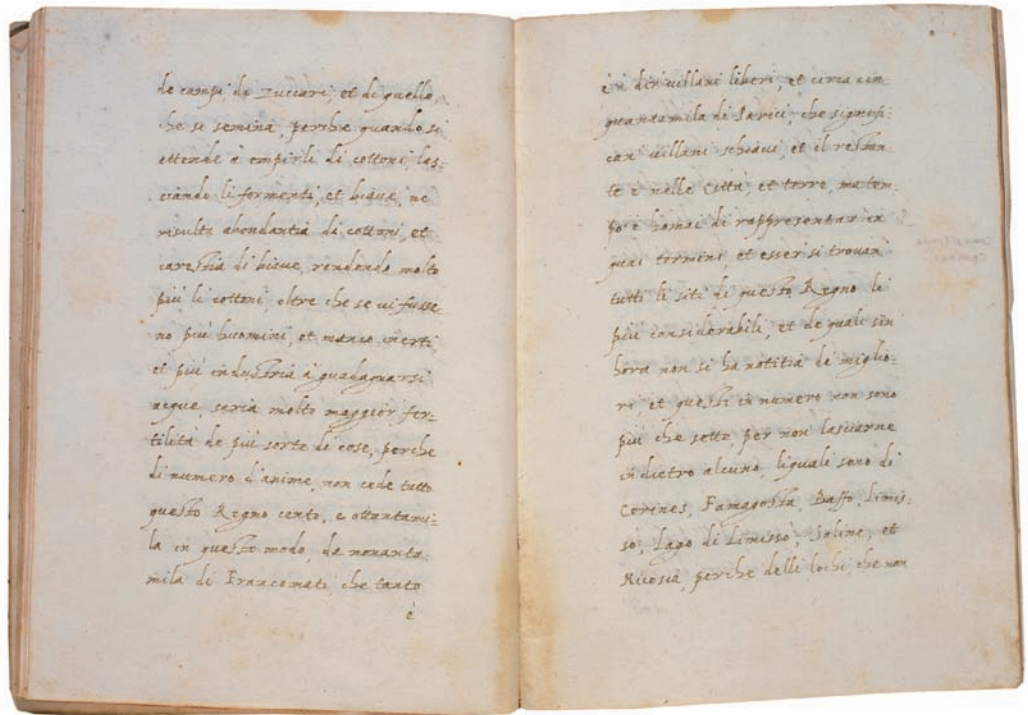 de campi da zuccari, et di quello,
che si semina, perche quando si
attende à empirli di cottoni, las-
ciando li formenti, et biave, ne
risulta abondantia di cottoni, et
carestia di biave, rendendo molto
più li cottoni, oltre che se vi fusse
no più huomini, et manco inerti
et più industria à guadagnarsi
acque, saria molto maggior fer-
tilità de più sorte di cose, perche
di numero d'anime, non cede tutto
questo Regno cento, e ottantami-
la in questo modo, da nonanta
mila di Francomati che tanto
è
è à dir villani liberi, et circa cin
quantamila di Parici, che signifi-
can villani schiavi, et il restan-
te è nelle Città, et terre, ma tem-
po è homai di rappresentar in
quai termini, et esser si trovan
tutti li siti di questo Regno li
più considerabili, et de quali sin
hora non si ha notitia de miglio-
ri, et questi in numero non sono
più che sette, per non lasciarne
in dietro alcuno, liquali sono di
Cerines, Famagosta, Baffo, Limis-
sò, Lago di Limissò, Saline, et
Nicosia, perche delli lochi, che non